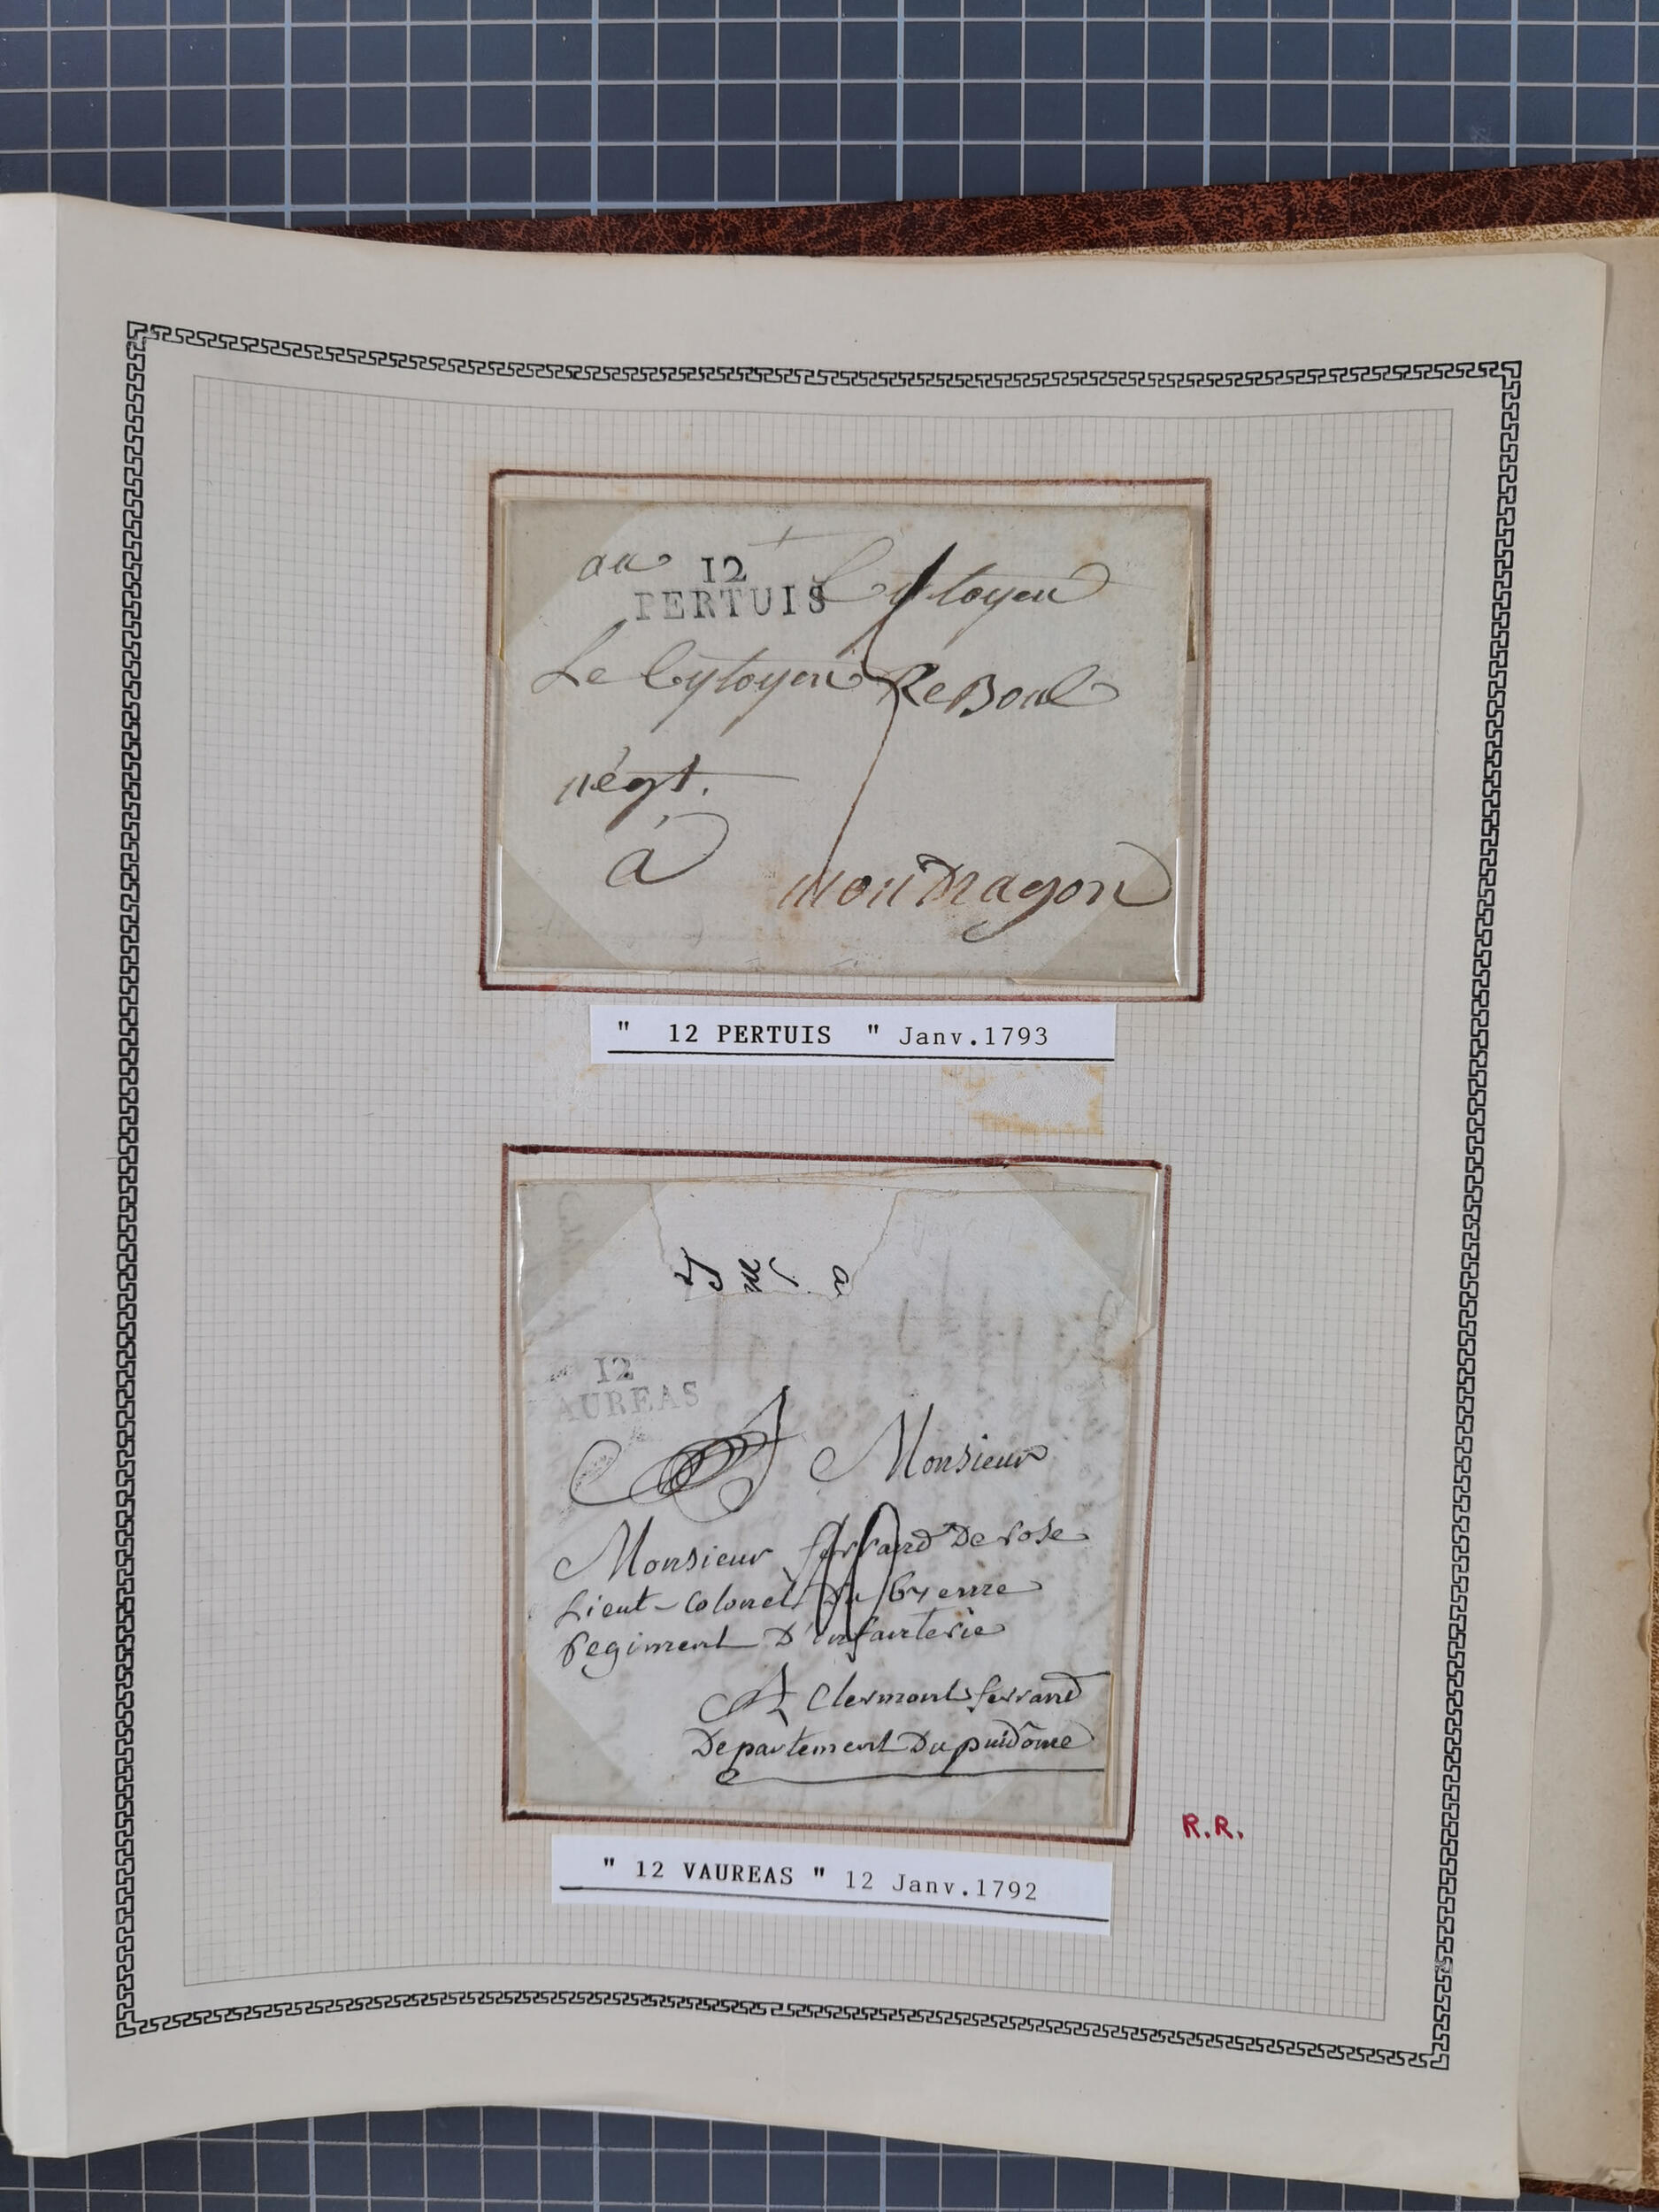 au 12 Cytoyen
PERTUIS
Le Cytoyen ReBoul
négt.
à monDragon
" 12 PERTUIS " Janv.1793
12
AUREAS
A Monsieur
Monsieur ferrand De rose
Lieut-Colonel Du 61 eme
regiment D'infanterie
A Clermont ferrand
Departement Du puidôme
R.R.
" 12 VAUREAS " 12 Janv.1792